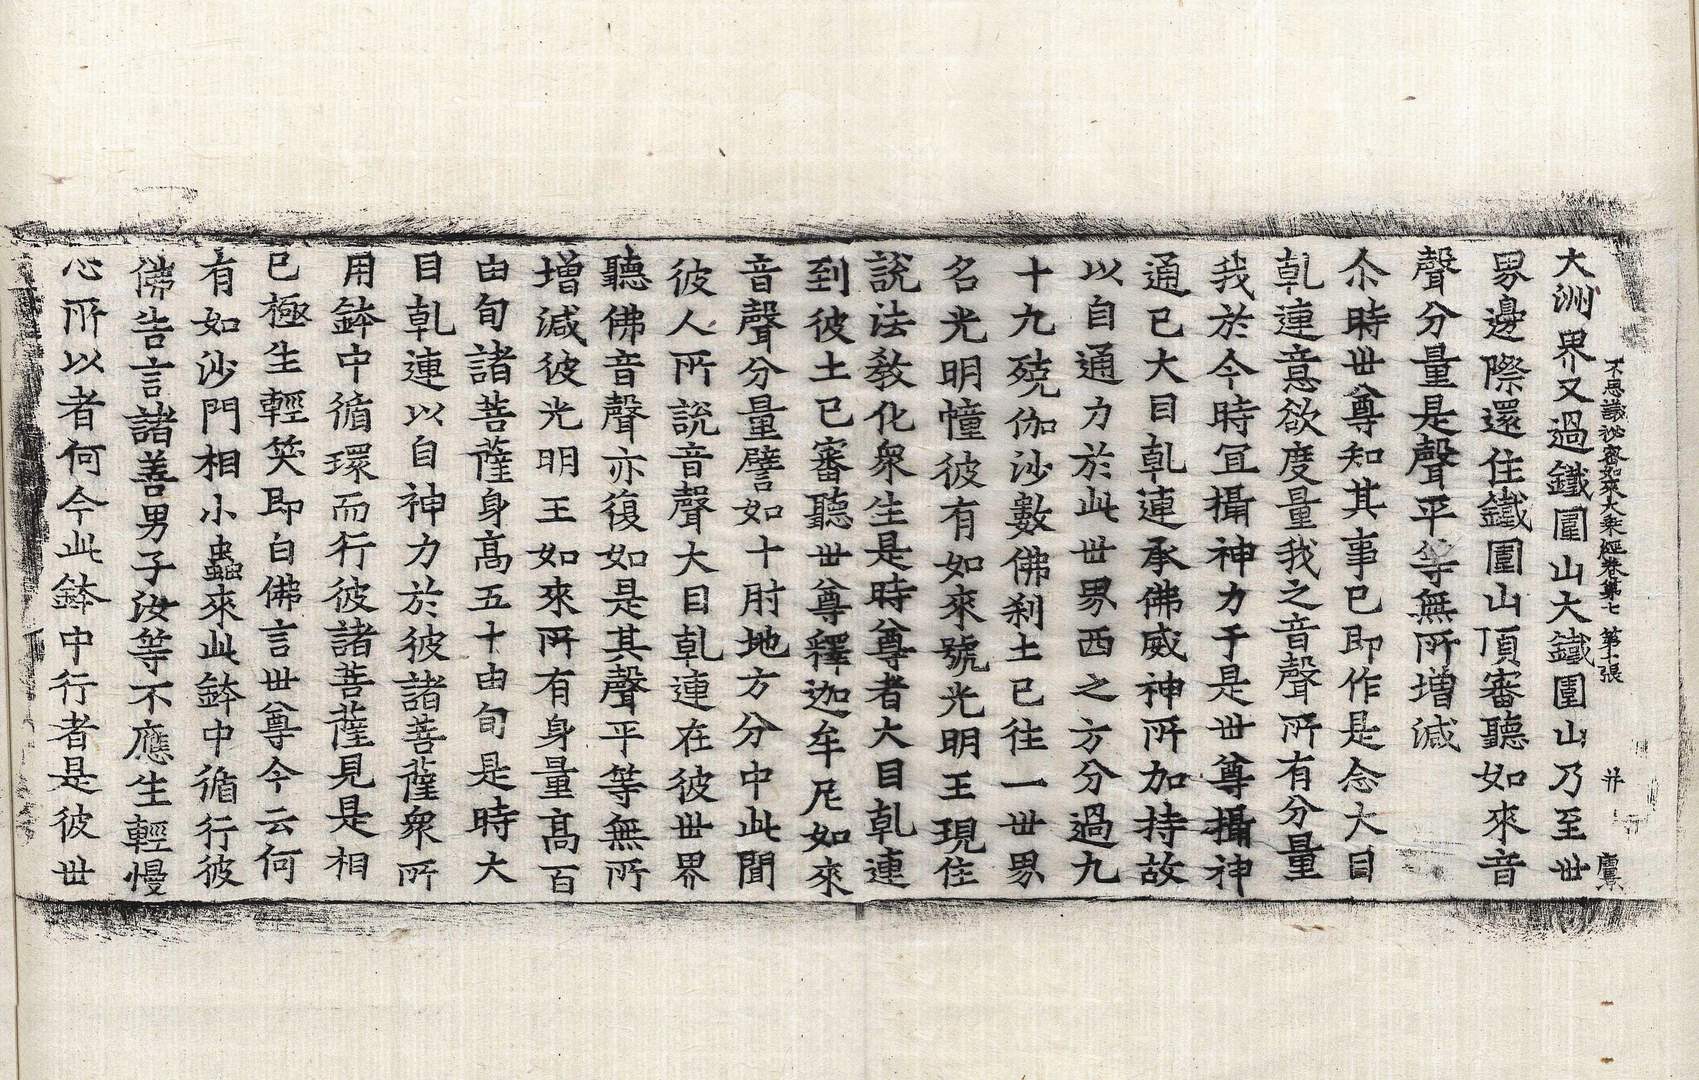 大洲界又過鐵圍山大鐵圍山乃至世
不思議祕密如來大乘經卷第七 第十張 廾 麖
界邊際還住鐵圍山頂審聽如來音
聲分量是聲平等無所增減
尒時世尊知其事已即作是念大目
乹連意欲度量我之音聲所有分量
我於今時宜攝神力于是世尊攝神
通已大目乹連承佛威神所加持故
以自通力於此世界西之方分過九
十九殑伽沙數佛刹土已往一世界
名光明幢彼有如來號光明王現住
說法教化衆生是時尊者大目乹連
到彼土已審聽世尊釋迦牟尼如來
音聲分量譬如十肘地方分中此聞
彼人所說音聲大目乹連在彼世界
聽佛音聲亦復如是其聲平等無所
增減彼光明王如來所有身量高百
由旬諸菩薩身高五十由旬是時大
目乹連以自神力於彼諸菩薩衆所
用鉢中循環而行彼諸菩薩見是相
已極生輕笑即白佛言世尊今云何
有如沙門相小蟲來此鉢中循行彼
佛告言諸善男子汝等不應生輕慢
心所以者何今此鉢中行者是彼世